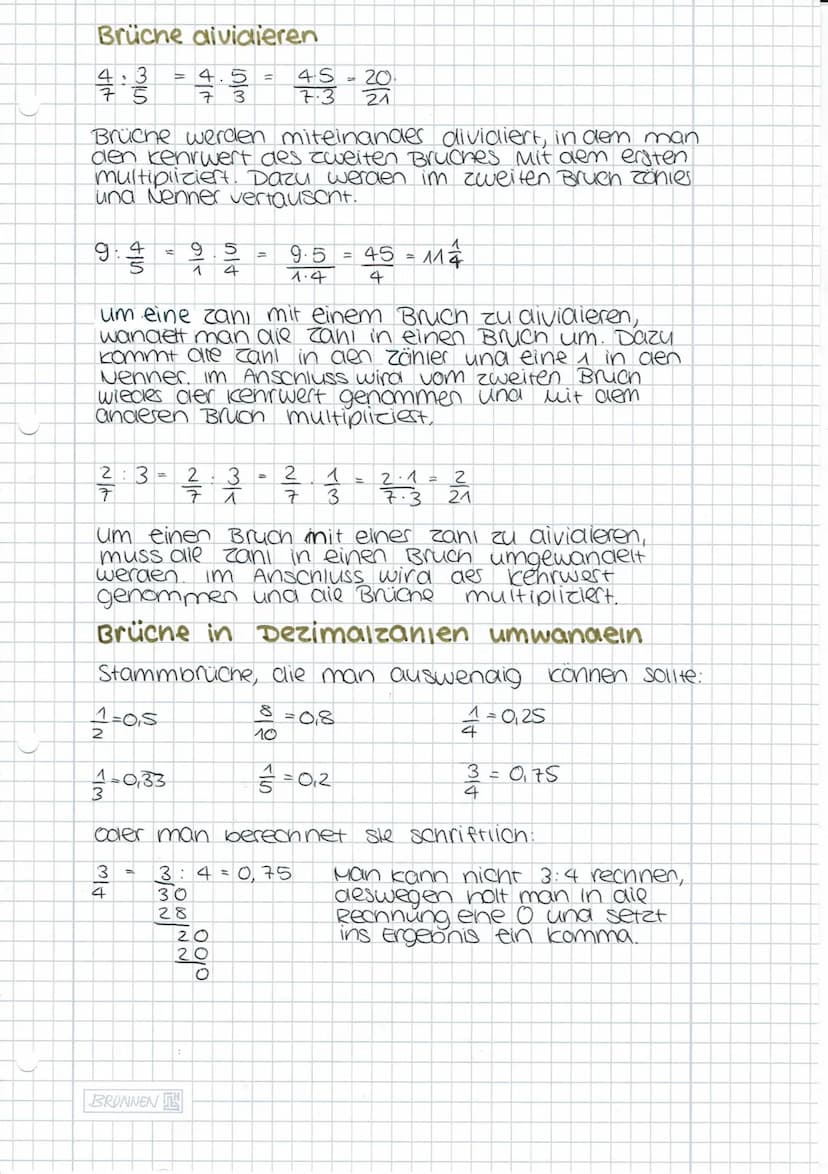 Brüche dividieren
4/7 : 3/5 = 4/7 · 5/3 = 4·5/7·3 = 20/21
Brüche werden miteinander dividiert, in dem man
den Kehrwert des zweiten Bruches mit dem ersten
multipliziert. Dazu werden im zweiten Bruch Zähler
und Nenner vertauscht.
9 : 4/5 = 9/1 · 5/4 = 9·5/1·4 = 45/4 = 11 1/4
um eine Zahl mit einem Bruch zu dividieren,
wandelt man die Zahl in einen Bruch um. Dazu
kommt die Zahl in den Zähler und eine 1 in den
Nenner. Im Anschluss wird vom zweiten Bruch
wieder der Kehrwert genommen und mit dem
anderen Bruch multipliziert.
2/7 : 3 = 2/7 : 3/1 = 2/7 · 1/3 = 2·1/7·3 = 2/21
Um einen Bruch mit einer Zahl zu dividieren,
muss die Zahl in einen Bruch umgewandelt
werden. Im Anschluss wird der Kehrwert
genommen und die Brüche multipliziert.
Brüche in Dezimalzahlen umwandeln
Stammbrüche, die man auswendig können sollte:
1/2 = 0,5 8/10 = 0,8 1/4 = 0,25
1/3 = 0,33 1/5 = 0,2 3/4 = 0,75
oder man berechnet sie schriftlich:
3/4 = 3 : 4 = 0,75 Man kann nicht 3:4 rechnen,
30 deswegen holt man in die
28 Rechnung eine 0 und setzt
20 ins Ergebnis ein Komma.
20
0
BRUNNEN